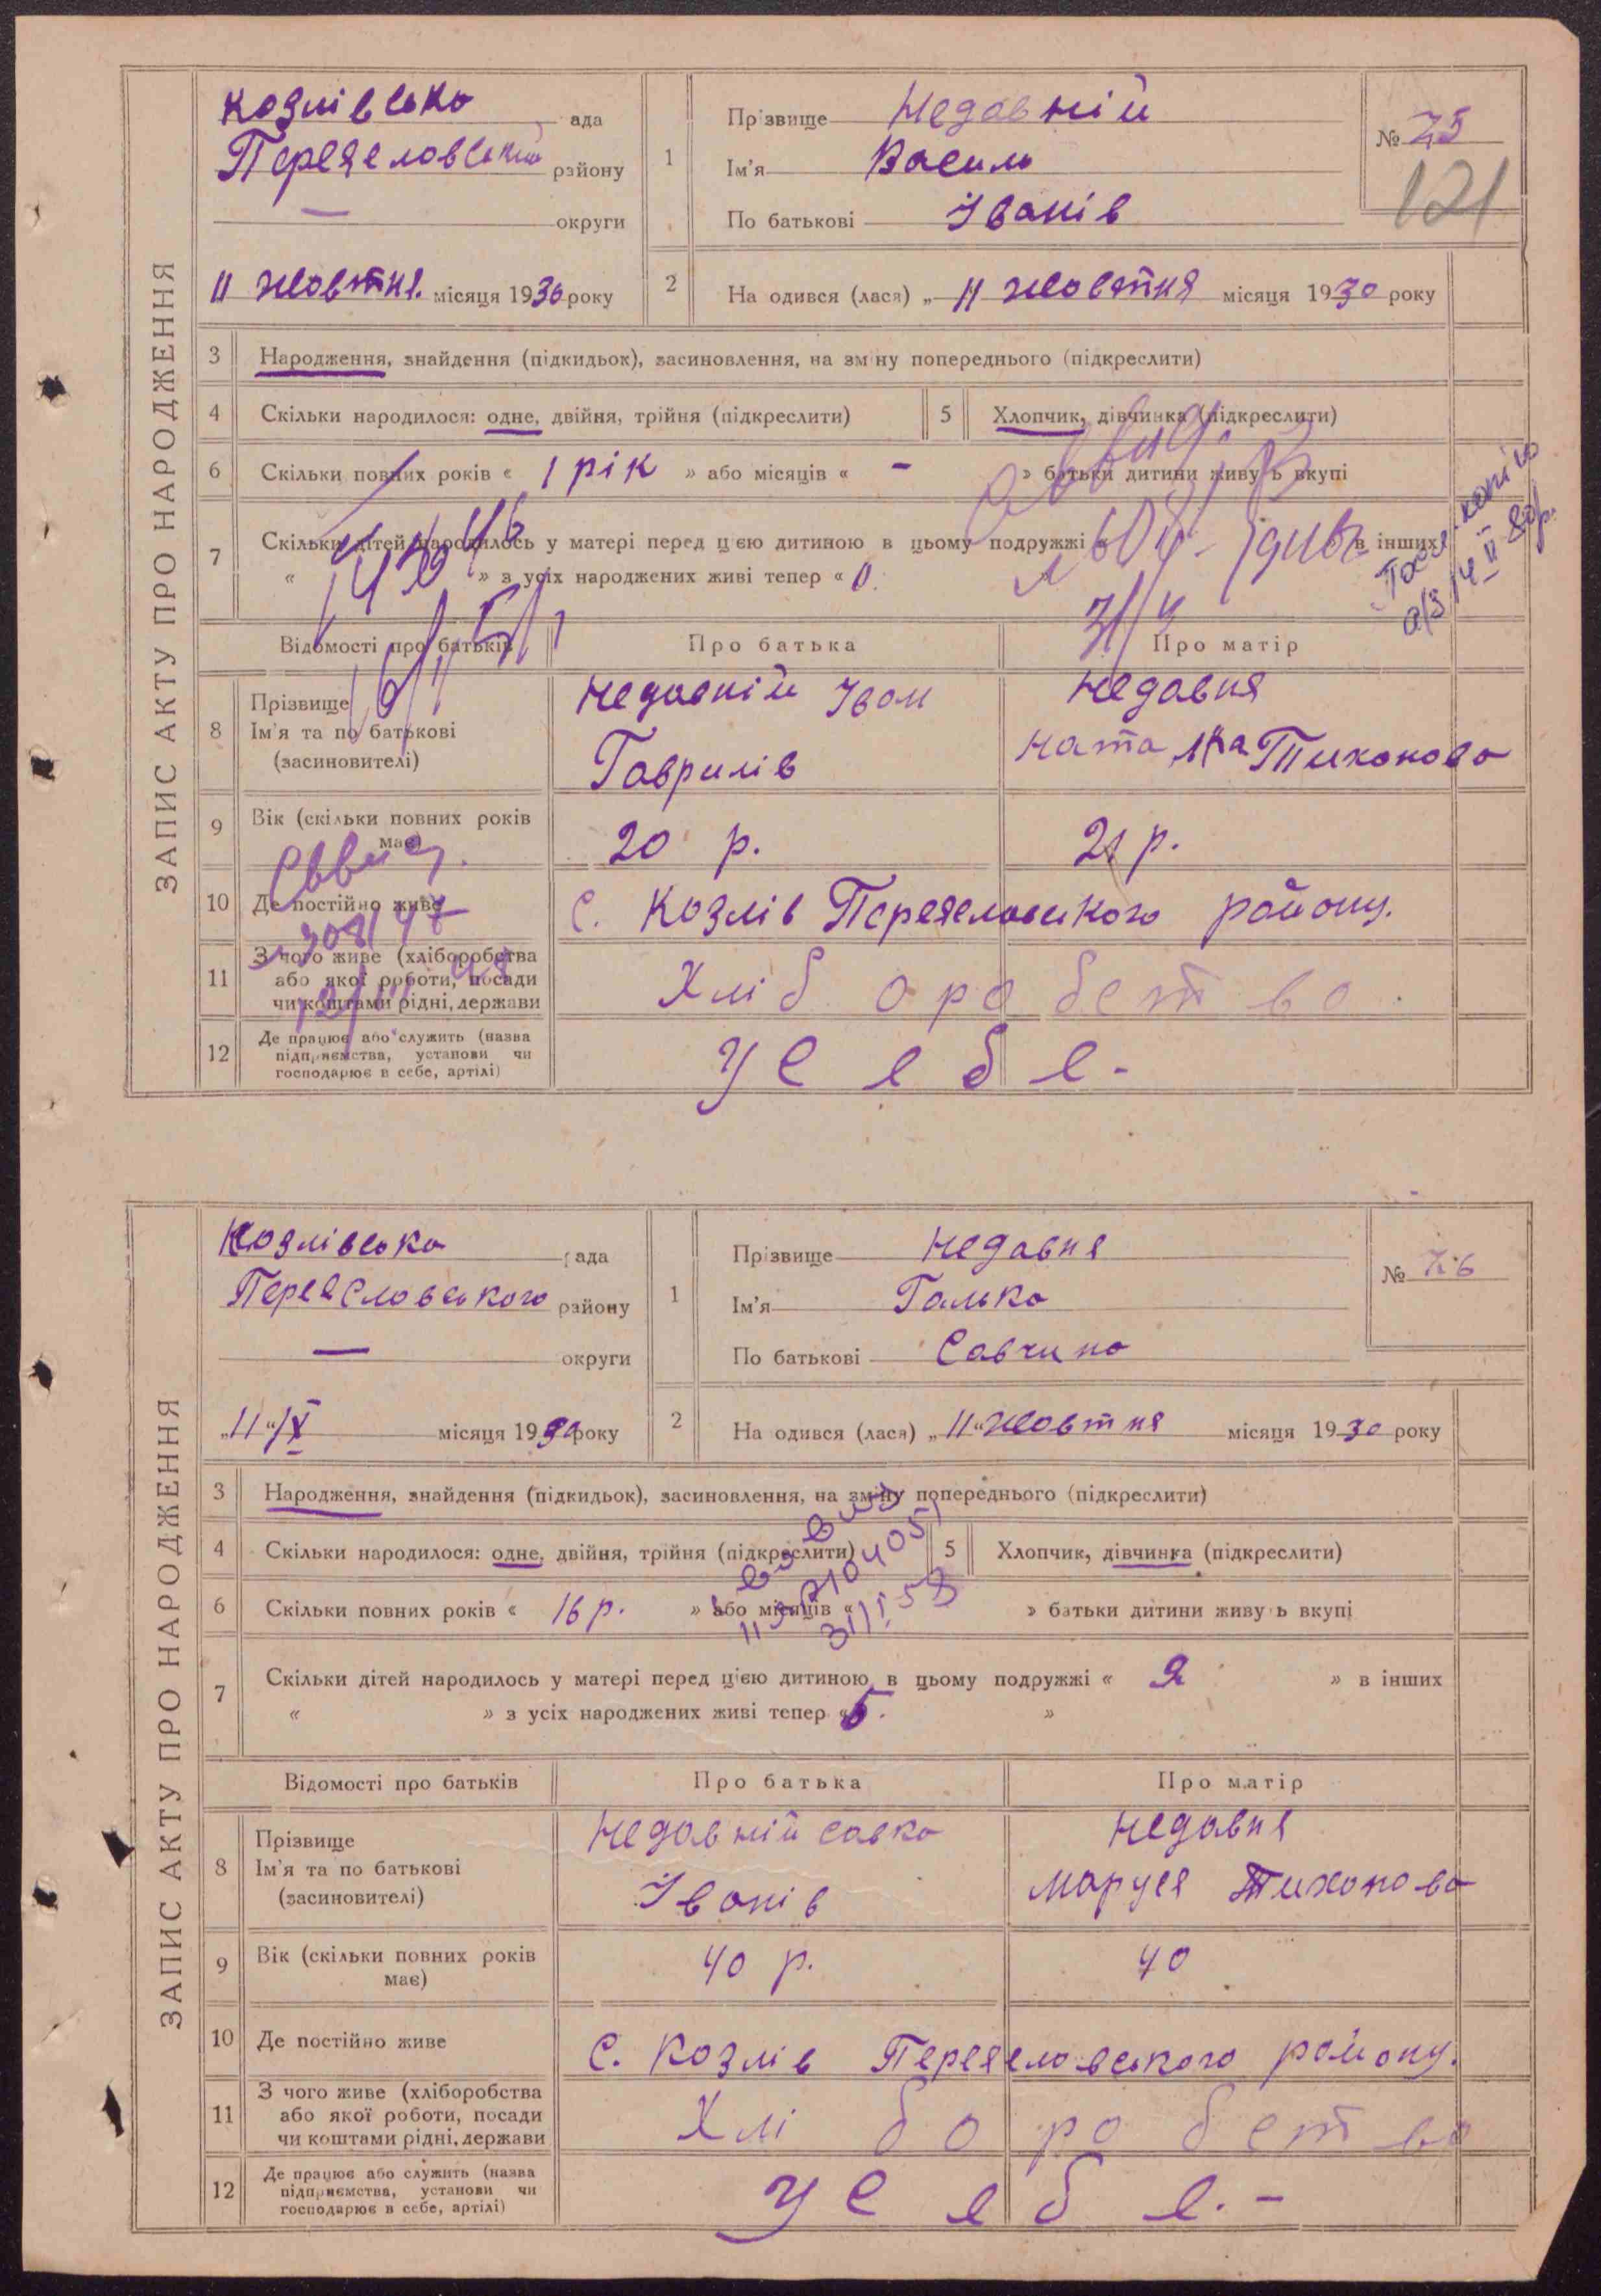 ЗАПИС АКТУ ПРО НАРОДЖЕННЯ
Козлівська рада
Переяславський району
— округи
11 жовтня місяця 1930 року
1 Прізвище Недавній
Ім'я Василь
По батькові Іванів
№ 75
121
2 Народився (лася) „ 11 жовтня місяця 1930 року
3 Народження, знайдення (підкидьок), засиновлення, на зміну попереднього (підкреслити)
4 Скільки народилося: одне, двійня, трійня (підкреслити)
5 Хлопчик, дівчинка (підкреслити)
6 Скільки повних років « 1 рік » або місяців « - » батьки дитини живуть вкупі
7 Скільки дітей народилось у матері перед цією дитиною в цьому подружжі « в інших
« » з усіх народжених живі тепер « 0.
Відомості про батьків Про батька Про матір
8 Прізвище
Ім'я та по батькові
(засиновителі)
Недавній Іван
Гаврилів
Недавня
Наталка Тихонова
9 Вік (скільки повних років
має)
20 р.
21 р.
10 Де постійно живе
с. Козлів Переяславського району.
11 З чого живе (хліборобства
або якої роботи, посади
чи коштами рідні, держави
Хліборобство
12 Де працює або служить (назва
підприємства, установи чи
господарює в себе, артілі)
У себе.-
ЗАПИС АКТУ ПРО НАРОДЖЕННЯ
Козлівська рада
Переяславського району
— округи
„11“/X місяця 1930 року
1 Прізвище Недавня
Ім'я Галька
По батькові Савчина
№ 76
2 Народився (лася) „11“ жовтня місяця 1930 року
3 Народження, знайдення (підкидьок), засиновлення, на зміну попереднього (підкреслити)
4 Скільки народилося: одне, двійня, трійня (підкреслити)
5 Хлопчик, дівчинка (підкреслити)
6 Скільки повних років « 16 р. » або місяців « » батьки дитини живуть вкупі
7 Скільки дітей народилось у матері перед цією дитиною в цьому подружжі « » в інших
« » з усіх народжених живі тепер « 5. »
Відомості про батьків Про батька Про матір
8 Прізвище
Ім'я та по батькові
(засиновителі)
Недавній Савка
Іванів
Недавня
Маруся Тихонова
9 Вік (скільки повних років
має)
40 р.
40
10 Де постійно живе
с. Козлів Переяславського району.
11 З чого живе (хліборобства
або якої роботи, посади
чи коштами рідні, держави
Хліборобство
12 Де працює або служить (назва
підприємства, установи чи
господарює в себе, артілі)
У себе.-